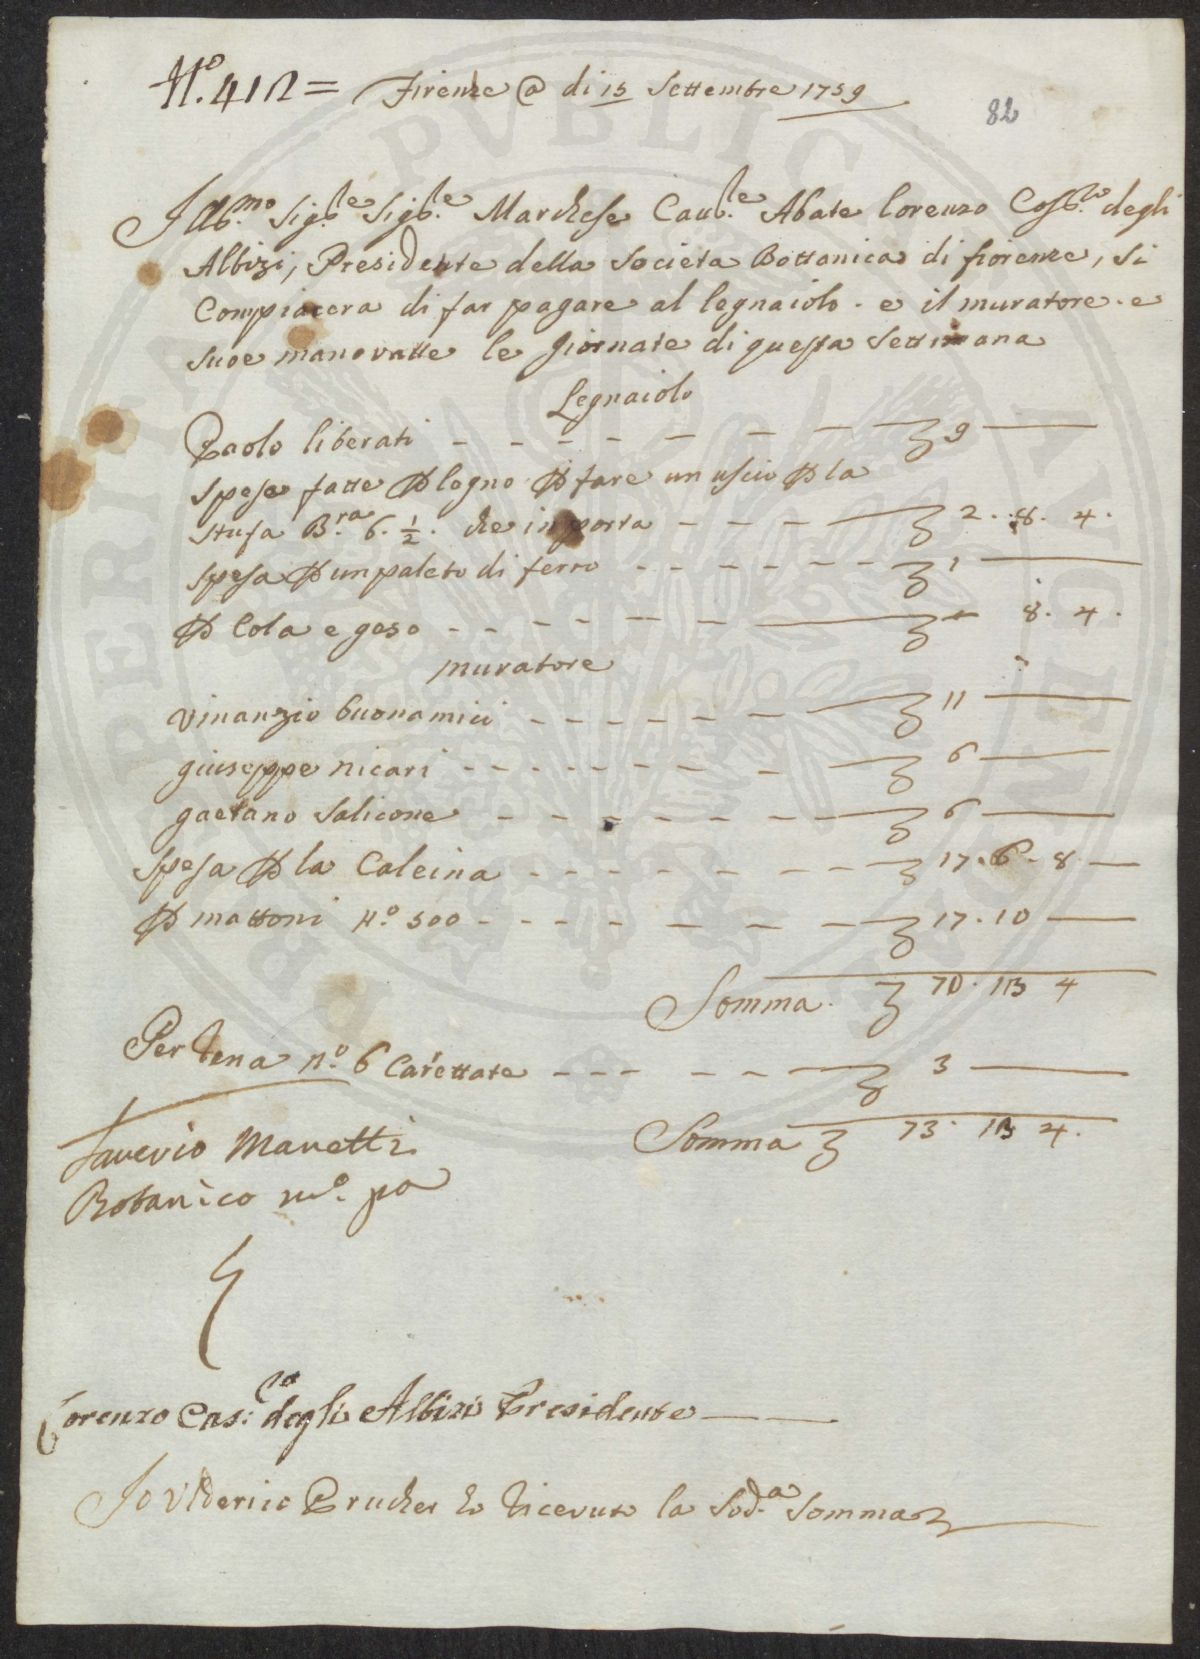 N.º 412 = Firenze @ di 15 Settembre 1759
82
Ill.mo Sig.re Sig.re Marchese Caul.re Abate Lorenzo Cos.mo degli
Albizi, Presidente della Societa Bottanica di fiorenze, Si
Compiacera di far pagare al legnaiolo. e il muratore. e
suoe manovatte le giornate di questa Settimana
Legnaiolo
Paolo liberati - - - - - - - - £ 9
spese fatte p legno p fare un uscio p la
stufa B.ra 6. 1/2. che importa - - - £ 2. 8. 4.
spesa p un paleto di ferro - - - - - - - £ 1
p Cola e geso - - - - - - £ - 8. 4.
muratore
vinanzio buonamici - - - - - - £ 11
giuseppe nicari - - - - - - - - £ 6
gaetano Salicone - - - - - - - £ 6
spesa p la Calcina - - - - - - - £ 17. 6. 8
p mattoni N.º 500 - - - - - - £ 17. 10
Somma. £ 70. 13 4
Per Rena n.º 6 Carettate - - - - - - £ 3
Somma £ 73. 13 4.
Saverio Manetti
Botanico m.º pa
Lorenzo Cas: Co degli Albizi Presidente
Io Vlderico Prucher ho Ricevuto la Sod.a Somma
PERITA PVBLICA